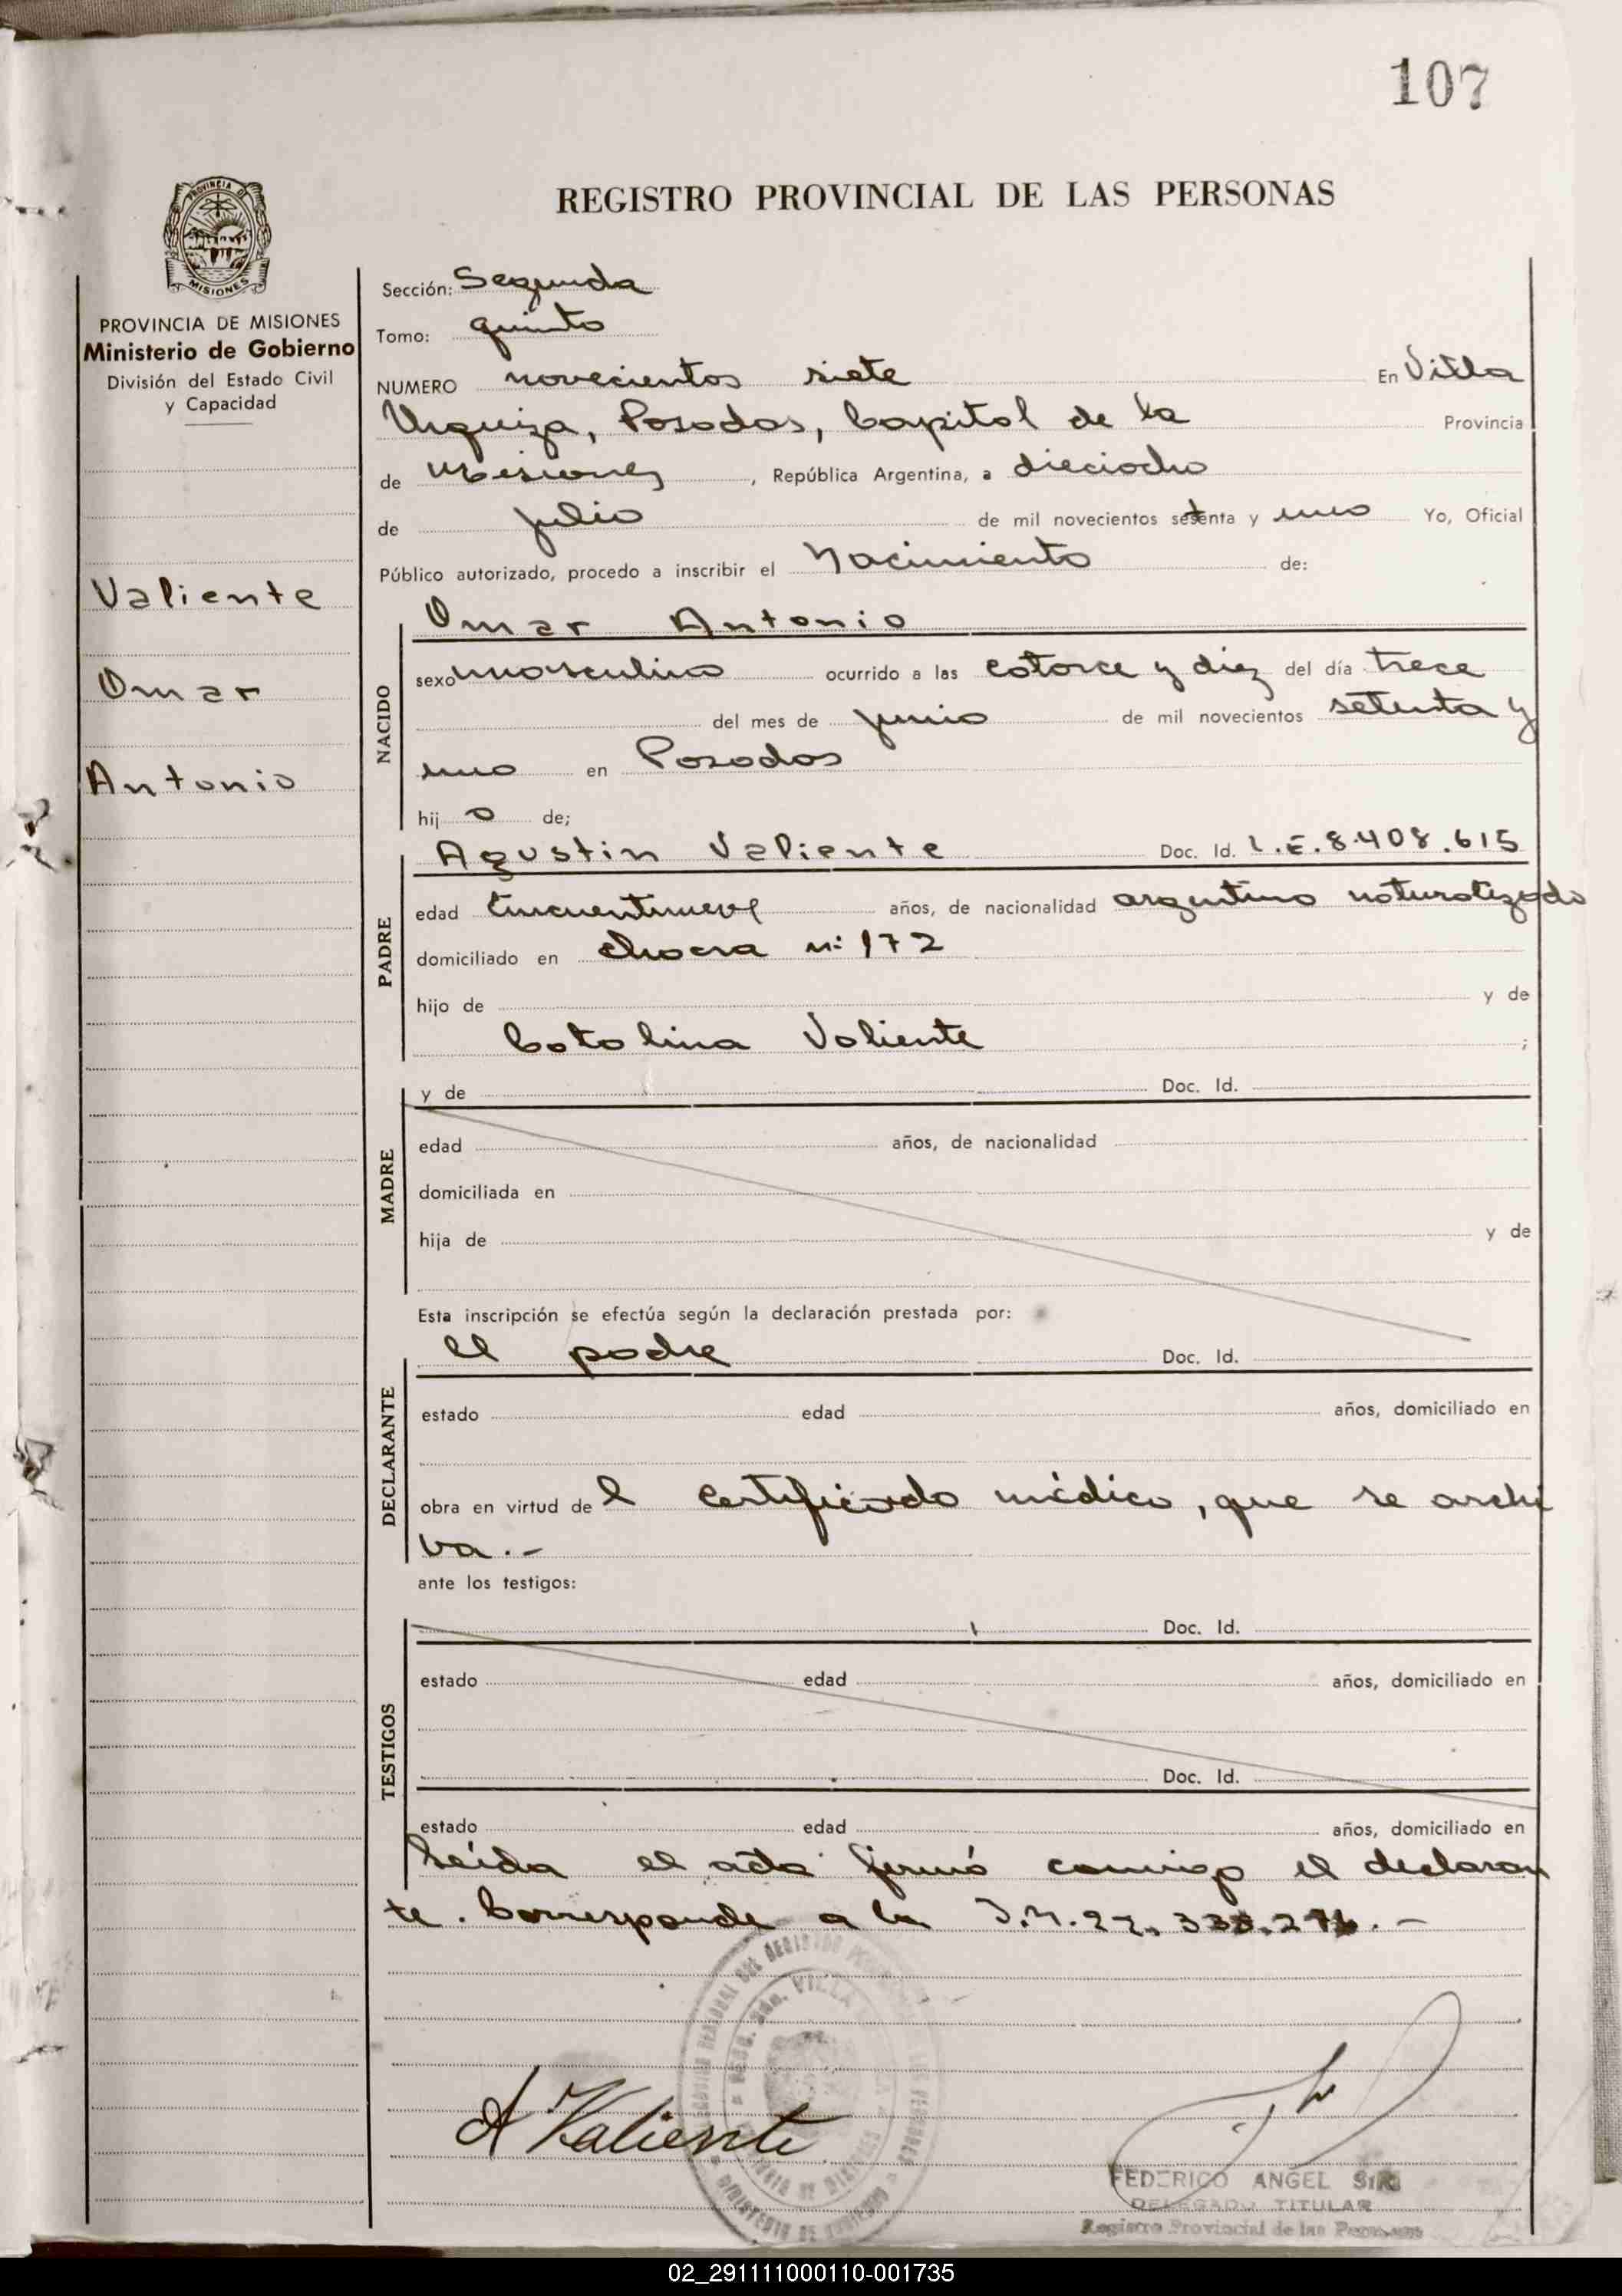 107
REGISTRO PROVINCIAL DE LAS PERSONAS
PROVINCIA DE
MISIONES
PROVINCIA DE MISIONES
Ministerio de Gobierno
División del Estado Civil
y Capacidad
Valiente
Omar
Antonio
Sección: Segunda
Tomo: quinto
NUMERO novecientos siete En Villa
Urquiza, Posadas, Capital de la Provincia
de Misiones, República Argentina, a dieciocho
de julio de mil novecientos setenta y uno Yo, Oficial
Público autorizado, procedo a inscribir el Nacimiento de:
Omar Antonio
NACIDO
sexo masculino ocurrido a las catorce y diez del día trece
del mes de junio de mil novecientos setenta y
uno en Posadas
hij o de;
Agustin Valiente Doc. Id. L.E. 8.408.615
PADRE
edad cincuentinueve años, de nacionalidad argentino naturalizado
domiciliado en chacra n: 172
hijo de y de
Catalina Valiente ;
y de Doc. Id.
MADRE
edad años, de nacionalidad
domiciliada en
hija de y de
Esta inscripción se efectúa según la declaración prestada por:
el padre Doc. Id.
DECLARANTE
estado edad años, domiciliado en
obra en virtud de l certificado médico, que se archi
va.-
ante los testigos:
Doc. Id.
TESTIGOS
estado edad años, domiciliado en
Doc. Id.
estado edad años, domiciliado en
Leída el acta firmó conmigo el declaran
te. Corresponde a la
A Valiente
FEDERICO ANGEL
DELEGADO TITULAR
Registro Provincial de las Personas
02_291111000110-001735